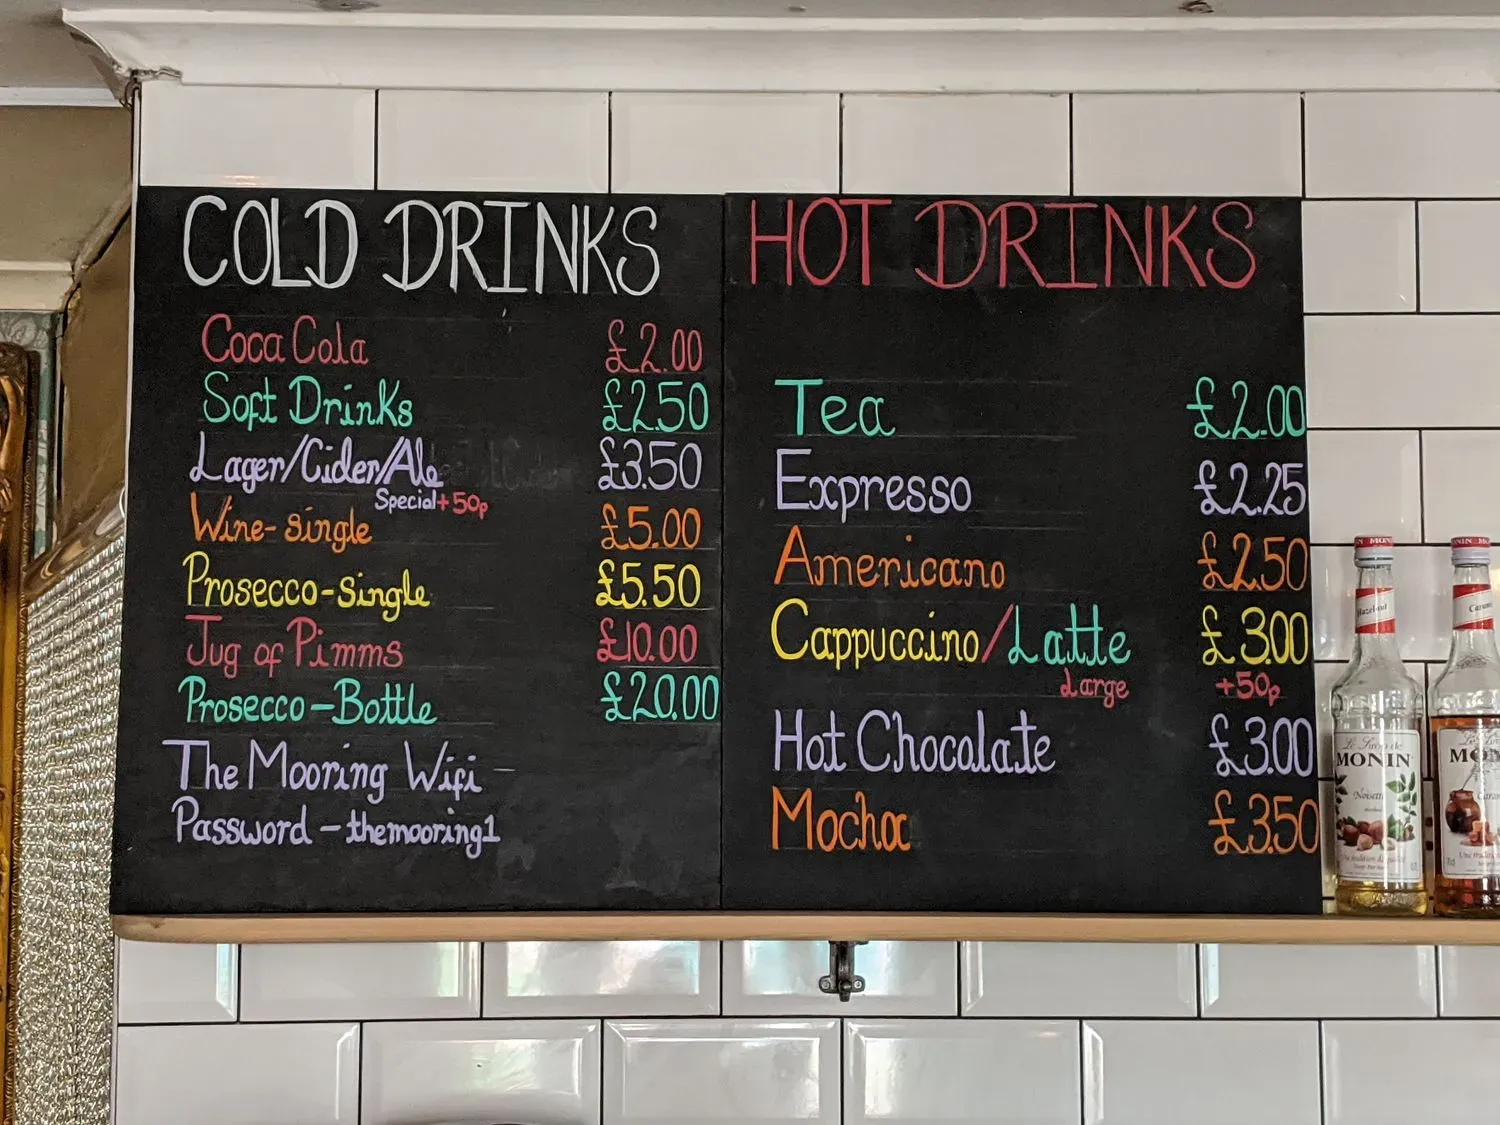 COLD DRINKS
Coca Cola £2.00
Soft Drinks £2.50
Lager/Cider/Ale £3.50
Special +50p
Wine- single £5.00
Prosecco-single £5.50
Jug of Pimms £10.00
Prosecco-Bottle £20.00
The Mooring Wifi
Password - themooring1
HOT DRINKS
Tea £2.00
Expresso £2.25
Americano £2.50
Cappuccino/Latte £3.00
Large +50p
Hot Chocolate £3.00
Mocha £3.50
Hazelnut
Le Sirop de
MONIN
Noisette